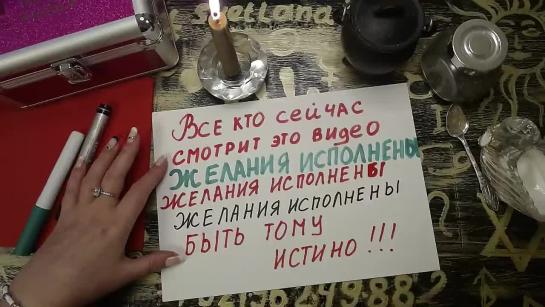 svetlana
Все кто сейчас
смотрит это видео
желания исполнены
желания исполнены
желания исполнены
быть тому
истино !!!